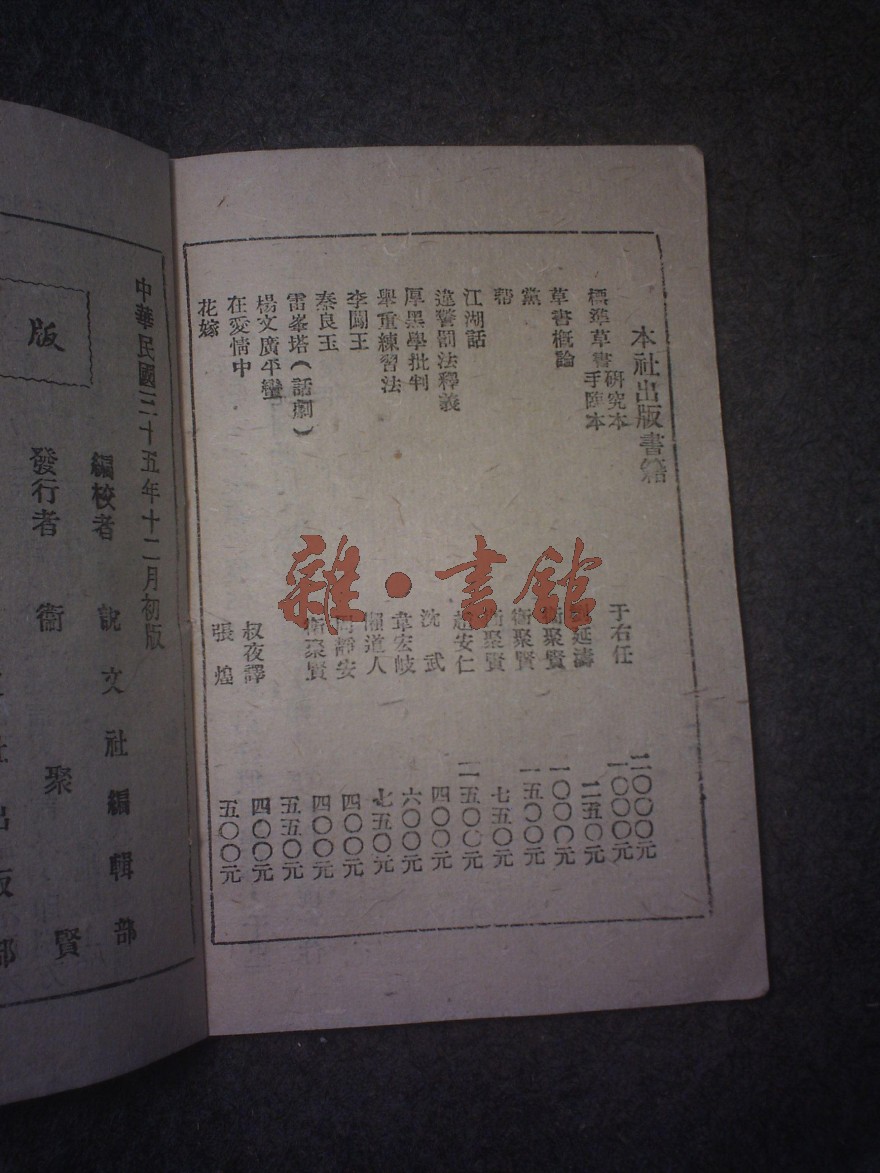 本社出版書籍
標準草書 研究本 于右任 二〇〇〇元
手 本 一〇〇〇元
草書概論 延濤 二五〇元
黨 衛聚賢 一〇〇〇元
幫 衛聚賢 一五〇〇元
江湖話 衛聚賢 七五〇元
違警罰法釋義 趙安仁 五〇〇元
厚黑學批判 沈武 四〇〇元
舉重練習法 章宏岐 六〇〇元
李闖王 道人 七五〇元
秦良玉 周靜安 四〇〇元
雷峯塔（話劇） 衛聚賢 四〇〇元
楊文廣平蠻 五五〇元
在愛情中 叔夜譯 四〇〇元
花嫁 張煌 五〇〇元
雜·書館
中華民國三十五年十二月初版
編校者 說文社編輯部
發行者 衞聚賢
社出版部
版